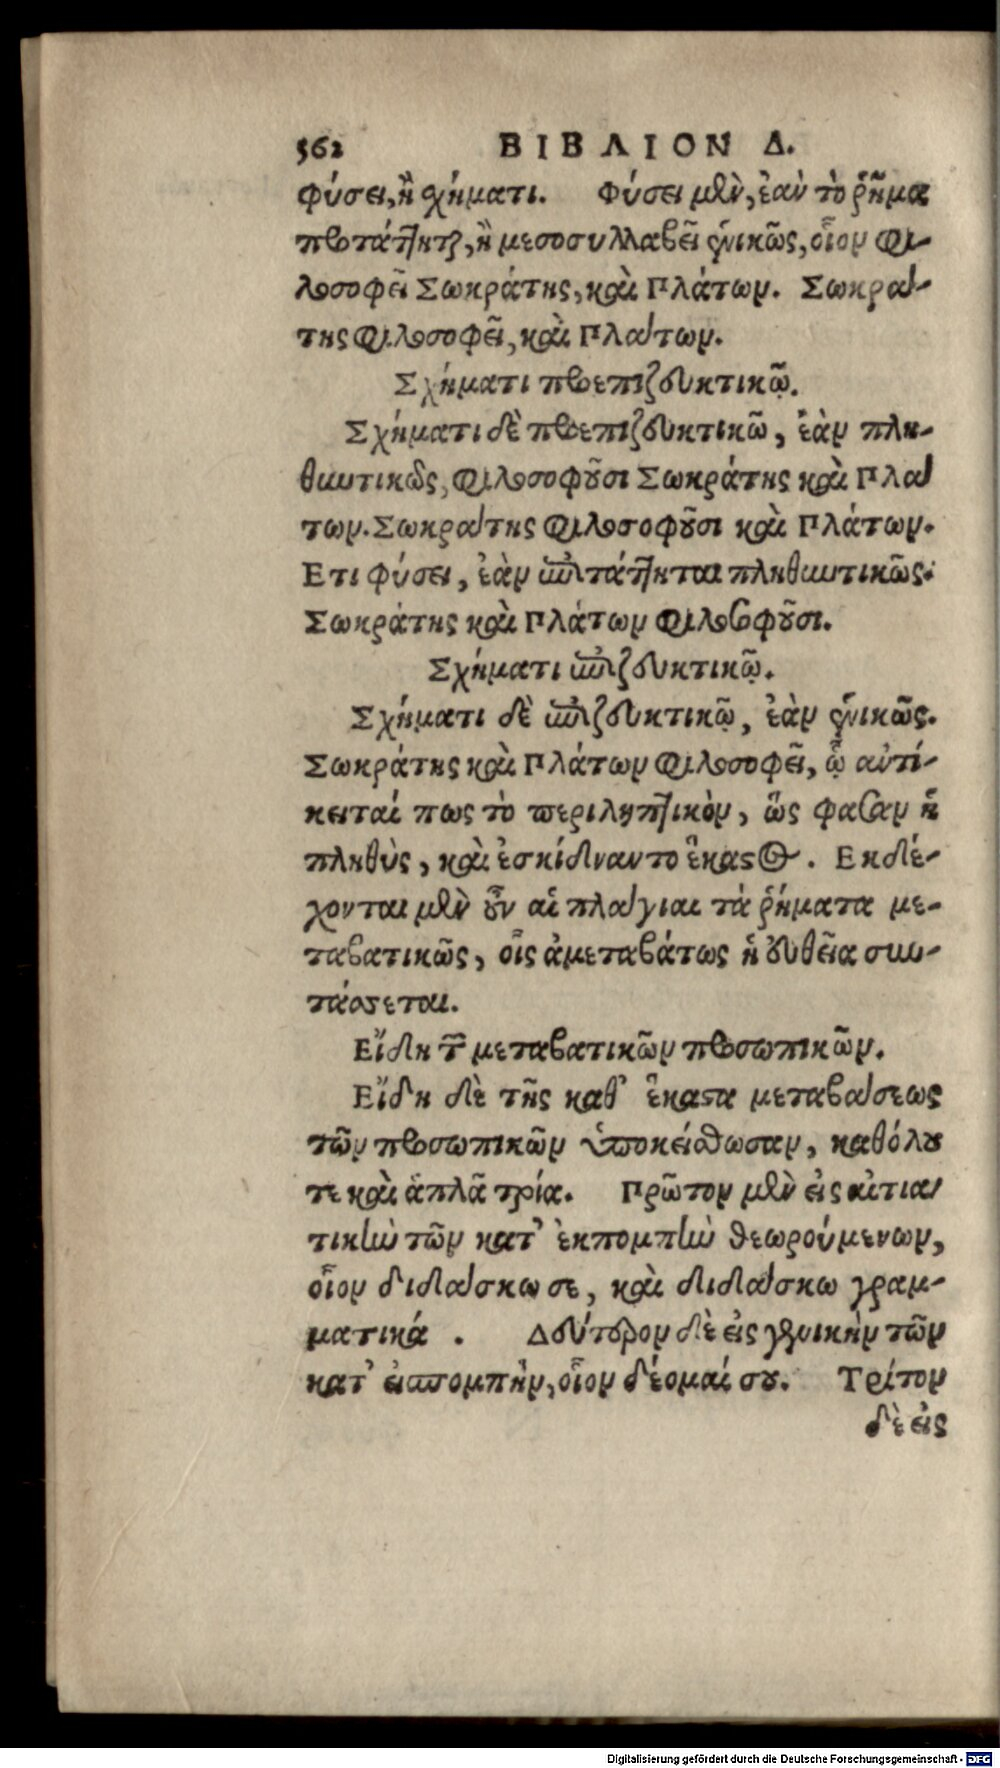 562 ΒΙΒΛΙΟΝ Δ.
φύσει, ἢ σχήματι. Φύσει μὲν, ἐὰν τὸ ῥῆμα
προτάττηται, ἢ μεσοσυλλαβεῖ ἑνικῶς, οἷον Φι-
λοσοφεῖ Σωκράτης, καὶ Πλάτων. Σωκρά-
της φιλοσοφεῖ, καὶ Πλάτων.
Σχήματι προεπιζευκτικῷ.
Σχήματι δὲ προεπιζευκτικῶ, ἐὰν πλη-
θυντικῶς, φιλοσοφοῦσι Σωκράτης καὶ Πλά
των. Σωκράτης φιλοσοφοῦσι καὶ Πλάτων.
Ετι φύσει, ἐὰν ὑποτάττηται πληθυντικῶς.
Σωκράτης καὶ Πλάτων φιλοσοφοῦσι.
Σχήματι ὑποζευκτικῷ.
Σχήματι δὲ ὑποζευκτικῷ, ἐὰν ἑνικῶς.
Σωκράτης καὶ Πλάτων φιλοσοφεῖ, ᾧ ἀντί-
κειταί πως τὸ περιληπτικὸν, ὣς φάσαν ἡ
πληθὺς, καὶ ἐσκίδναντο ἕκαστος. Εκδέ-
χονται μὲν οὖν αἱ πλάγιαι τὰ ῥήματα με-
ταβατικῶς, οἷς ἀμεταβάτως ἡ εὐθεῖα συν-
τάσσεται.
Εἴδη τῶν μεταβατικῶν προσωπικῶν.
Εἴδη δὲ τῆς καθ' ἕκαστα μεταβάσεως
τῶν προσωπικῶν ὑποκείσθωσαν, καθόλου
τε καὶ ἁπλᾶ τρία. Πρῶτον μὲν εἰς αἰτια
τικὴν τῶν κατ' ἐκπομπὴν θεωρούμενων,
οἷον διδάσκω σε, καὶ διδάσκω γραμ-
ματικά. Δεύτερον δὲ εἰς γενικὴν τῶν
κατ' εἰσπομπὴν, οἷον δέομαί σου. Τρίτον
δὲ εἰς
Digitalisierung gefördert durch die Deutsche Forschungsgemeinschaft - DFG